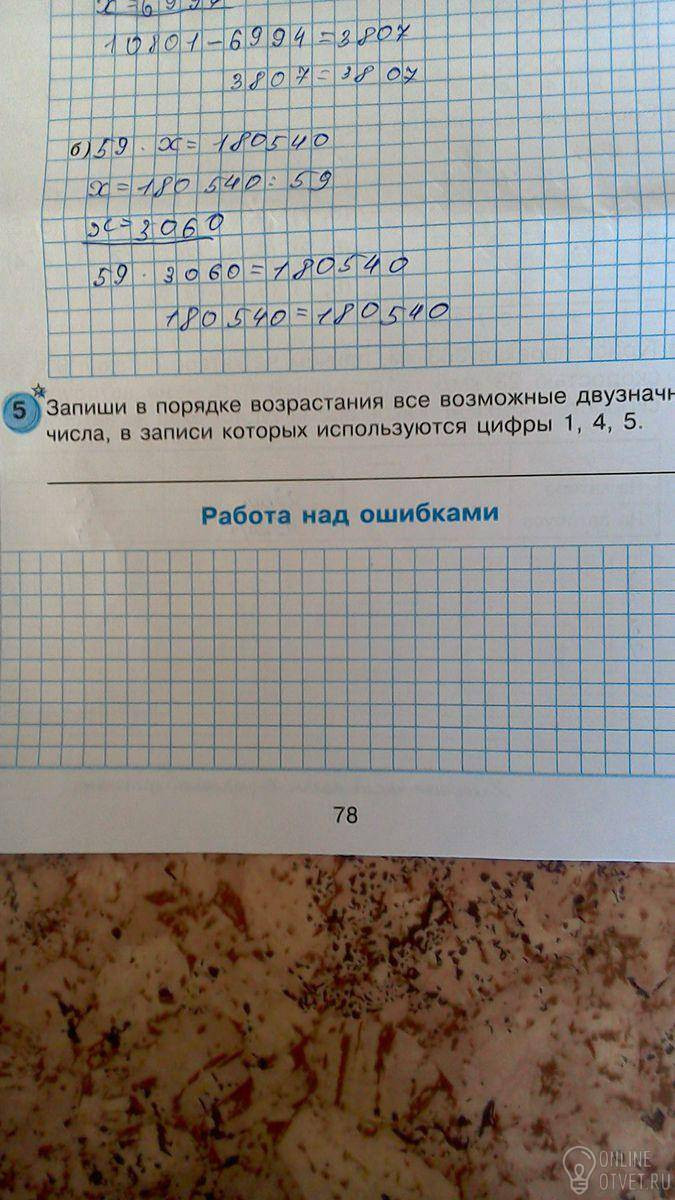 x=6994
10801-6994=3807
3807=3807
б) 59 · x = 180540
x=180 540 : 59
x=3060
59 · 3060=180540
180 540=180540
5 Запиши в порядке возрастания все возможные двузначн
числа, в записи которых используются цифры 1, 4, 5.
Работа над ошибками
78
ONLINE
OTVET.RU